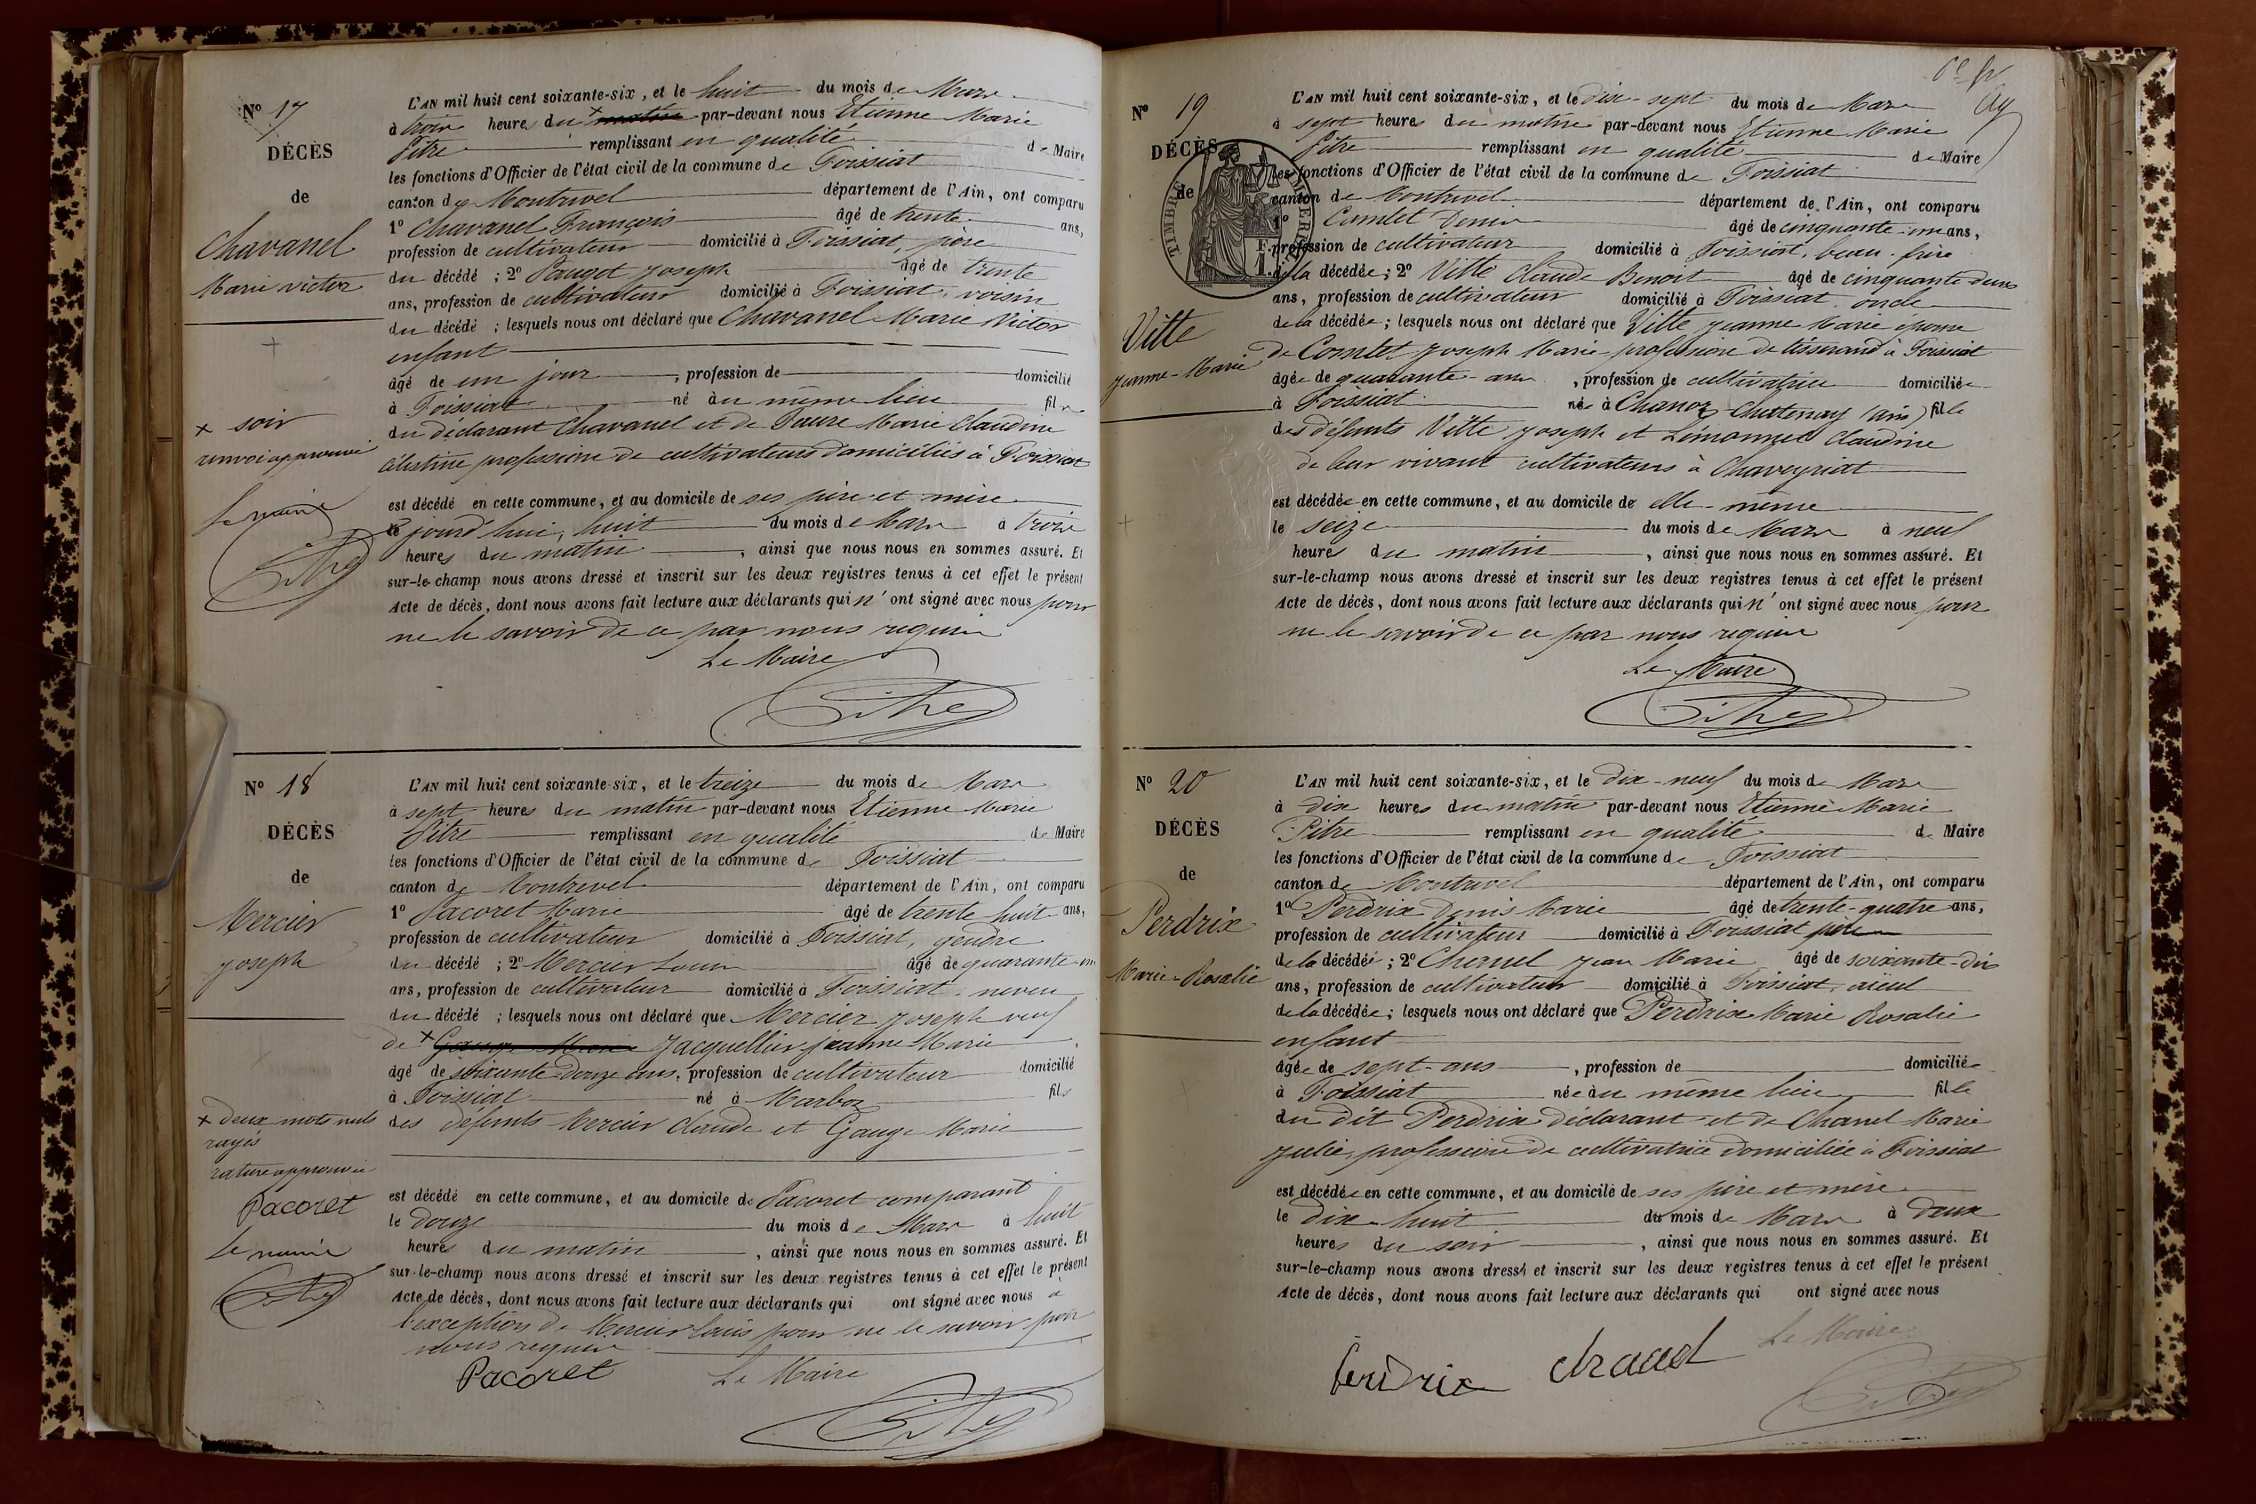 N° 17
DÉCÈS
de
Chavanel
Marie Victor
+
x soir
renvoi approuvé
Le maire
Pitre
L'AN mil huit cent soixante-six, et le huit du mois de Mars
à trois heures du x matin par-devant nous Etienne Marie
Pitre remplissant en qualité de Maire
les fonctions d'Officier de l'état civil de la commune de Foissiat
canton de Montrevel département de l'Ain, ont comparu
1° Chavanel François âgé de trente ans,
profession de cultivateur domicilié à Foissiat, père
du décédé ; 2° Joseph âgé de trente
ans, profession de cultivateur domicilié à Foissiat, voisin
du décédé ; lesquels nous ont déclaré que Chavanel Marie Victor
enfant
âgé de un jour, profession de domicilié
à Foissiat né au même lieu fils
du déclarant Chavanel et de Faure Marie Claudine
Célestine profession de cultivateurs domiciliés à Foissiat
est décédé en cette commune, et au domicile de ses père et mère
le jourd'hui, huit du mois de Mars à trois
heures du matin, ainsi que nous nous en sommes assuré. Et
sur-le-champ nous avons dressé et inscrit sur les deux registres tenus à cet effet le présent
Acte de décès, dont nous avons fait lecture aux déclarants qui n'ont signé avec nous pour
ne le savoir de ce par nous requis
Le Maire
Pitre
N° 18
DÉCÈS
de
Mercier
Joseph
x deux mots nuls
rayés
rature approuvée
Pacoret
Le maire
Pitre
L'AN mil huit cent soixante-six, et le treize du mois de Mars
à sept heures du matin par-devant nous Etienne Marie
Pitre remplissant en qualité de Maire
les fonctions d'Officier de l'état civil de la commune de Foissiat
canton de Montrevel département de l'Ain, ont comparu
1° Pacoret Marie âgé de trente huit ans,
profession de cultivateur domicilié à Foissiat, gendre
du décédé ; 2° Mercier Louis âgé de quarante un
ans, profession de cultivateur domicilié à Foissiat neveu
du décédé ; lesquels nous ont déclaré que Mercier Joseph veuf
de x Gauge Marie Jacquellier Jeanne Marie
âgé de soixante-douze ans, profession de cultivateur domicilié
à Foissiat né à Marboz fils
des défunts Mercier Claude et Gauge Marie
est décédé en cette commune, et au domicile de Pacoret comparant
le douze du mois de Mars à huit
heures du matin, ainsi que nous nous en sommes assuré. Et
sur-le-champ nous avons dressé et inscrit sur les deux registres tenus à cet effet le présent
Acte de décès, dont nous avons fait lecture aux déclarants qui ont signé avec nous à
l'exception de Mercier Louis pour ne le savoir par
nous requis
Pacoret Le Maire
Pitre
N° 19
DÉCÈS
de
TIMBRE IMPÉRIAL
Vitte
Jeanne-Marie
L'AN mil huit cent soixante-six, et le dix-sept du mois de Mars
à sept heures du matin par-devant nous Etienne Marie
Pitre remplissant en qualité de Maire
les fonctions d'Officier de l'état civil de la commune de Foissiat
canton de Montrevel département de l'Ain, ont comparu
1° Comtet Denis âgé de cinquante-un ans,
profession de cultivateur domicilié à Foissiat, beau-frère
de la décédée ; 2° Vitte Claude Benoit âgé de cinquante deux
ans, profession de cultivateur domicilié à Foissiat oncle
de la décédée ; lesquels nous ont déclaré que Vitte Jeanne Marie épouse
de Comtet Joseph Marie profession de tisserand à Foissiat
âgée de quarante-ans, profession de cultivatrice domiciliée
à Foissiat née à Chanoz Chatenay (ain) fille
des défunts Vitte Joseph et Limonnet Claudine
de leur vivant cultivateurs à Chaveyriat
est décédée en cette commune, et au domicile de elle-même
le seize du mois de Mars à neuf
heures du matin, ainsi que nous nous en sommes assuré. Et
sur-le-champ nous avons dressé et inscrit sur les deux registres tenus à cet effet le présent
Acte de décès, dont nous avons fait lecture aux déclarants qui n'ont signé avec nous pour
ne le savoir de ce par nous requis
Le Maire
Pitre
N° 20
DÉCÈS
de
Perdrix
Marie-Rosalie
L'AN mil huit cent soixante-six, et le dix-neuf du mois de Mars
à dix heures du matin par-devant nous Etienne Marie
Pitre remplissant en qualité de Maire
les fonctions d'Officier de l'état civil de la commune de Foissiat
canton de Montrevel département de l'Ain, ont comparu
1° Perdrix Denis Marie âgé de trente-quatre ans,
profession de cultivateur domicilié à Foissiat père
de la décédée ; 2° Charnel Jean Marie âgé de soixante-dix
ans, profession de cultivateur domicilié à Foissiat, aïeul
de la décédée ; lesquels nous ont déclaré que Perdrix Marie Rosalie
enfant
âgée de sept-ans, profession de domiciliée
à Foissiat née au même lieu fille
du dit Perdrix déclarant et de Charnel Marie
Julie, profession de cultivatrice domiciliée à Foissiat
est décédée en cette commune, et au domicile de ses père et mère
le dix-huit du mois de Mars à deux
heures du soir, ainsi que nous nous en sommes assuré. Et
sur-le-champ nous avons dressé et inscrit sur les deux registres tenus à cet effet le présent
Acte de décès, dont nous avons fait lecture aux déclarants qui ont signé avec nous
Le Maire
Perdrix
Pitre